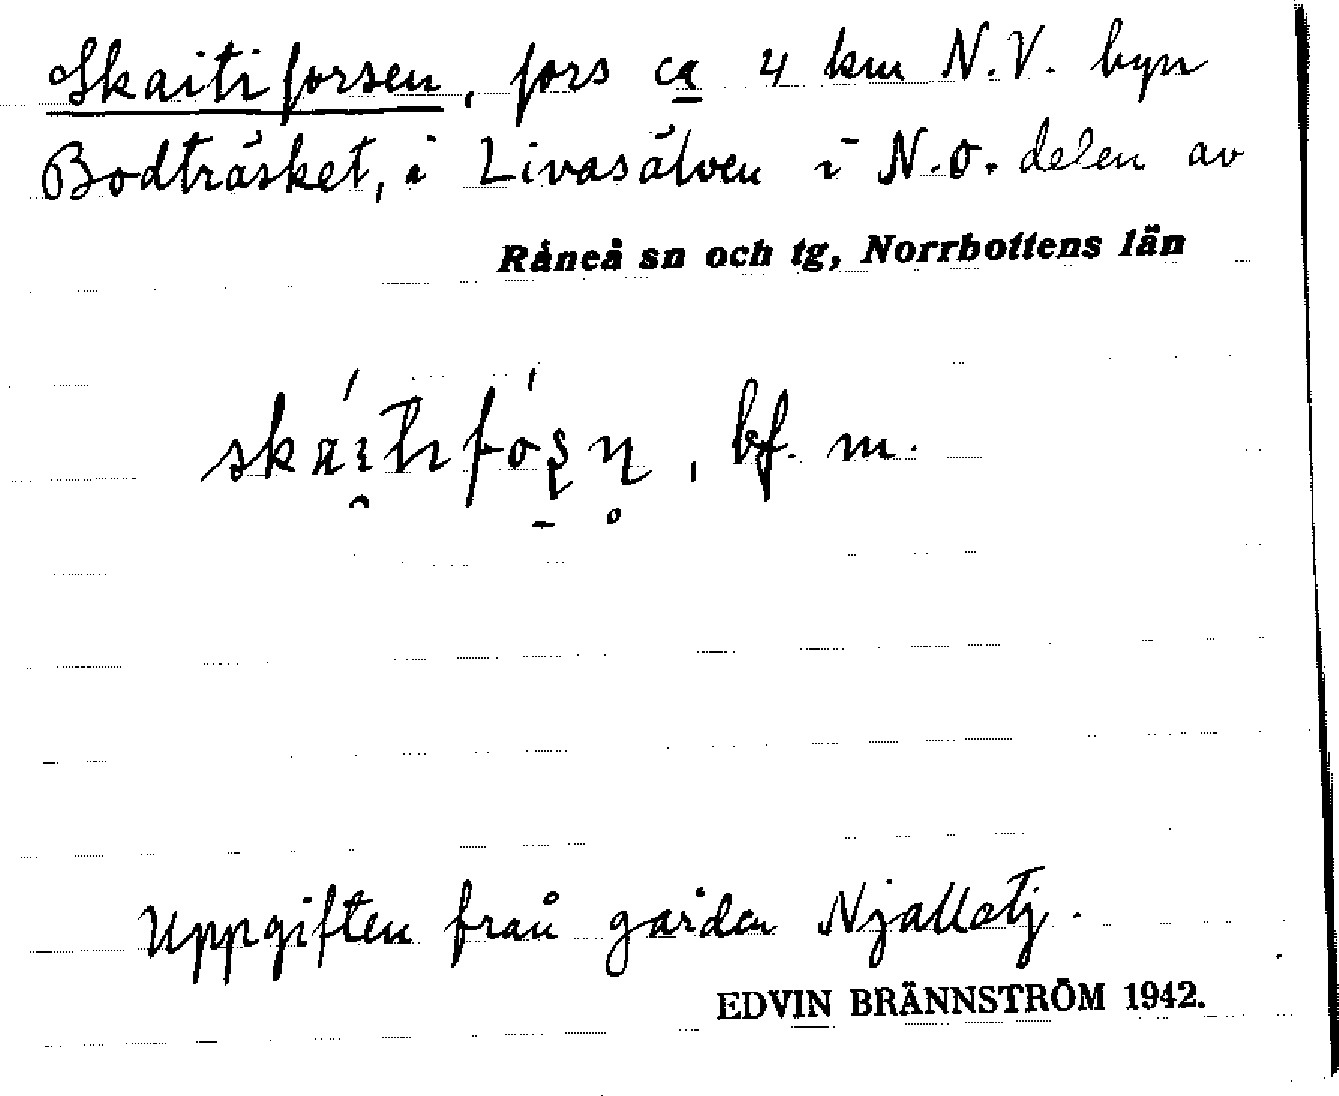 Skaitiforsen, fors ca 4 km N.V. byn
Bodträsket, i Livasälven i N.O. delen av
Råneå sn och tg, Norrbottens län
bf. m.
Uppgiften från gården Njalletj.
EDVIN BRÄNNSTRÖM 1942.